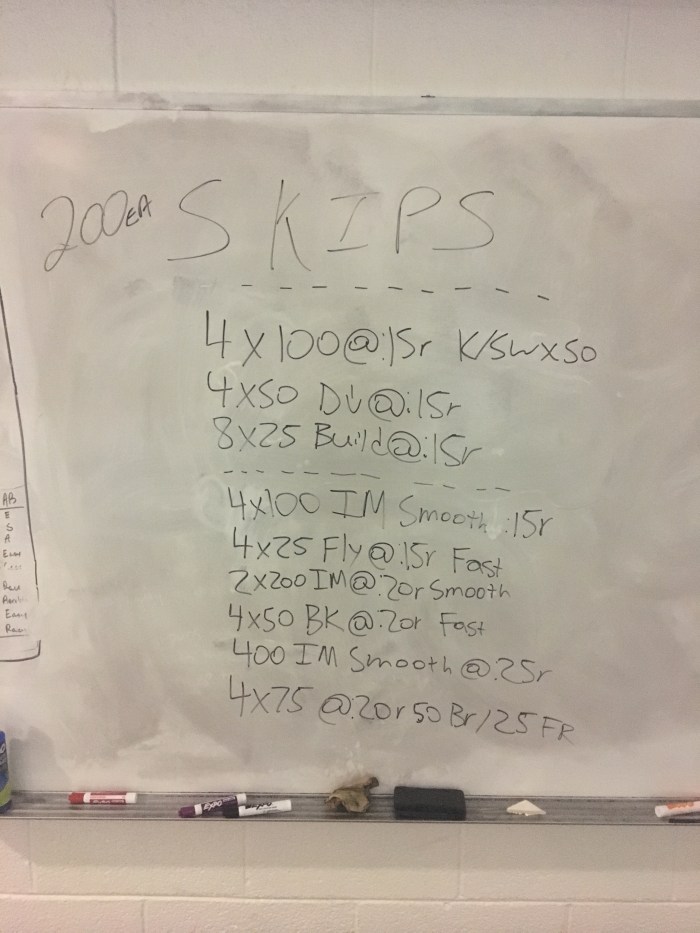 200EA SKIPS
4x100@:15r K/SWx50
4x50 D↓@:15r
8x25 Build@:15r
4x100 IM Smooth :15r
4x25 Fly@:15r Fast
2x200 IM@:20r Smooth
4x50 BK@:20r Fast
400 IM Smooth @:25r
4x75 @:20r 50 Br/25 FR
AB
E
S
A
EXPO